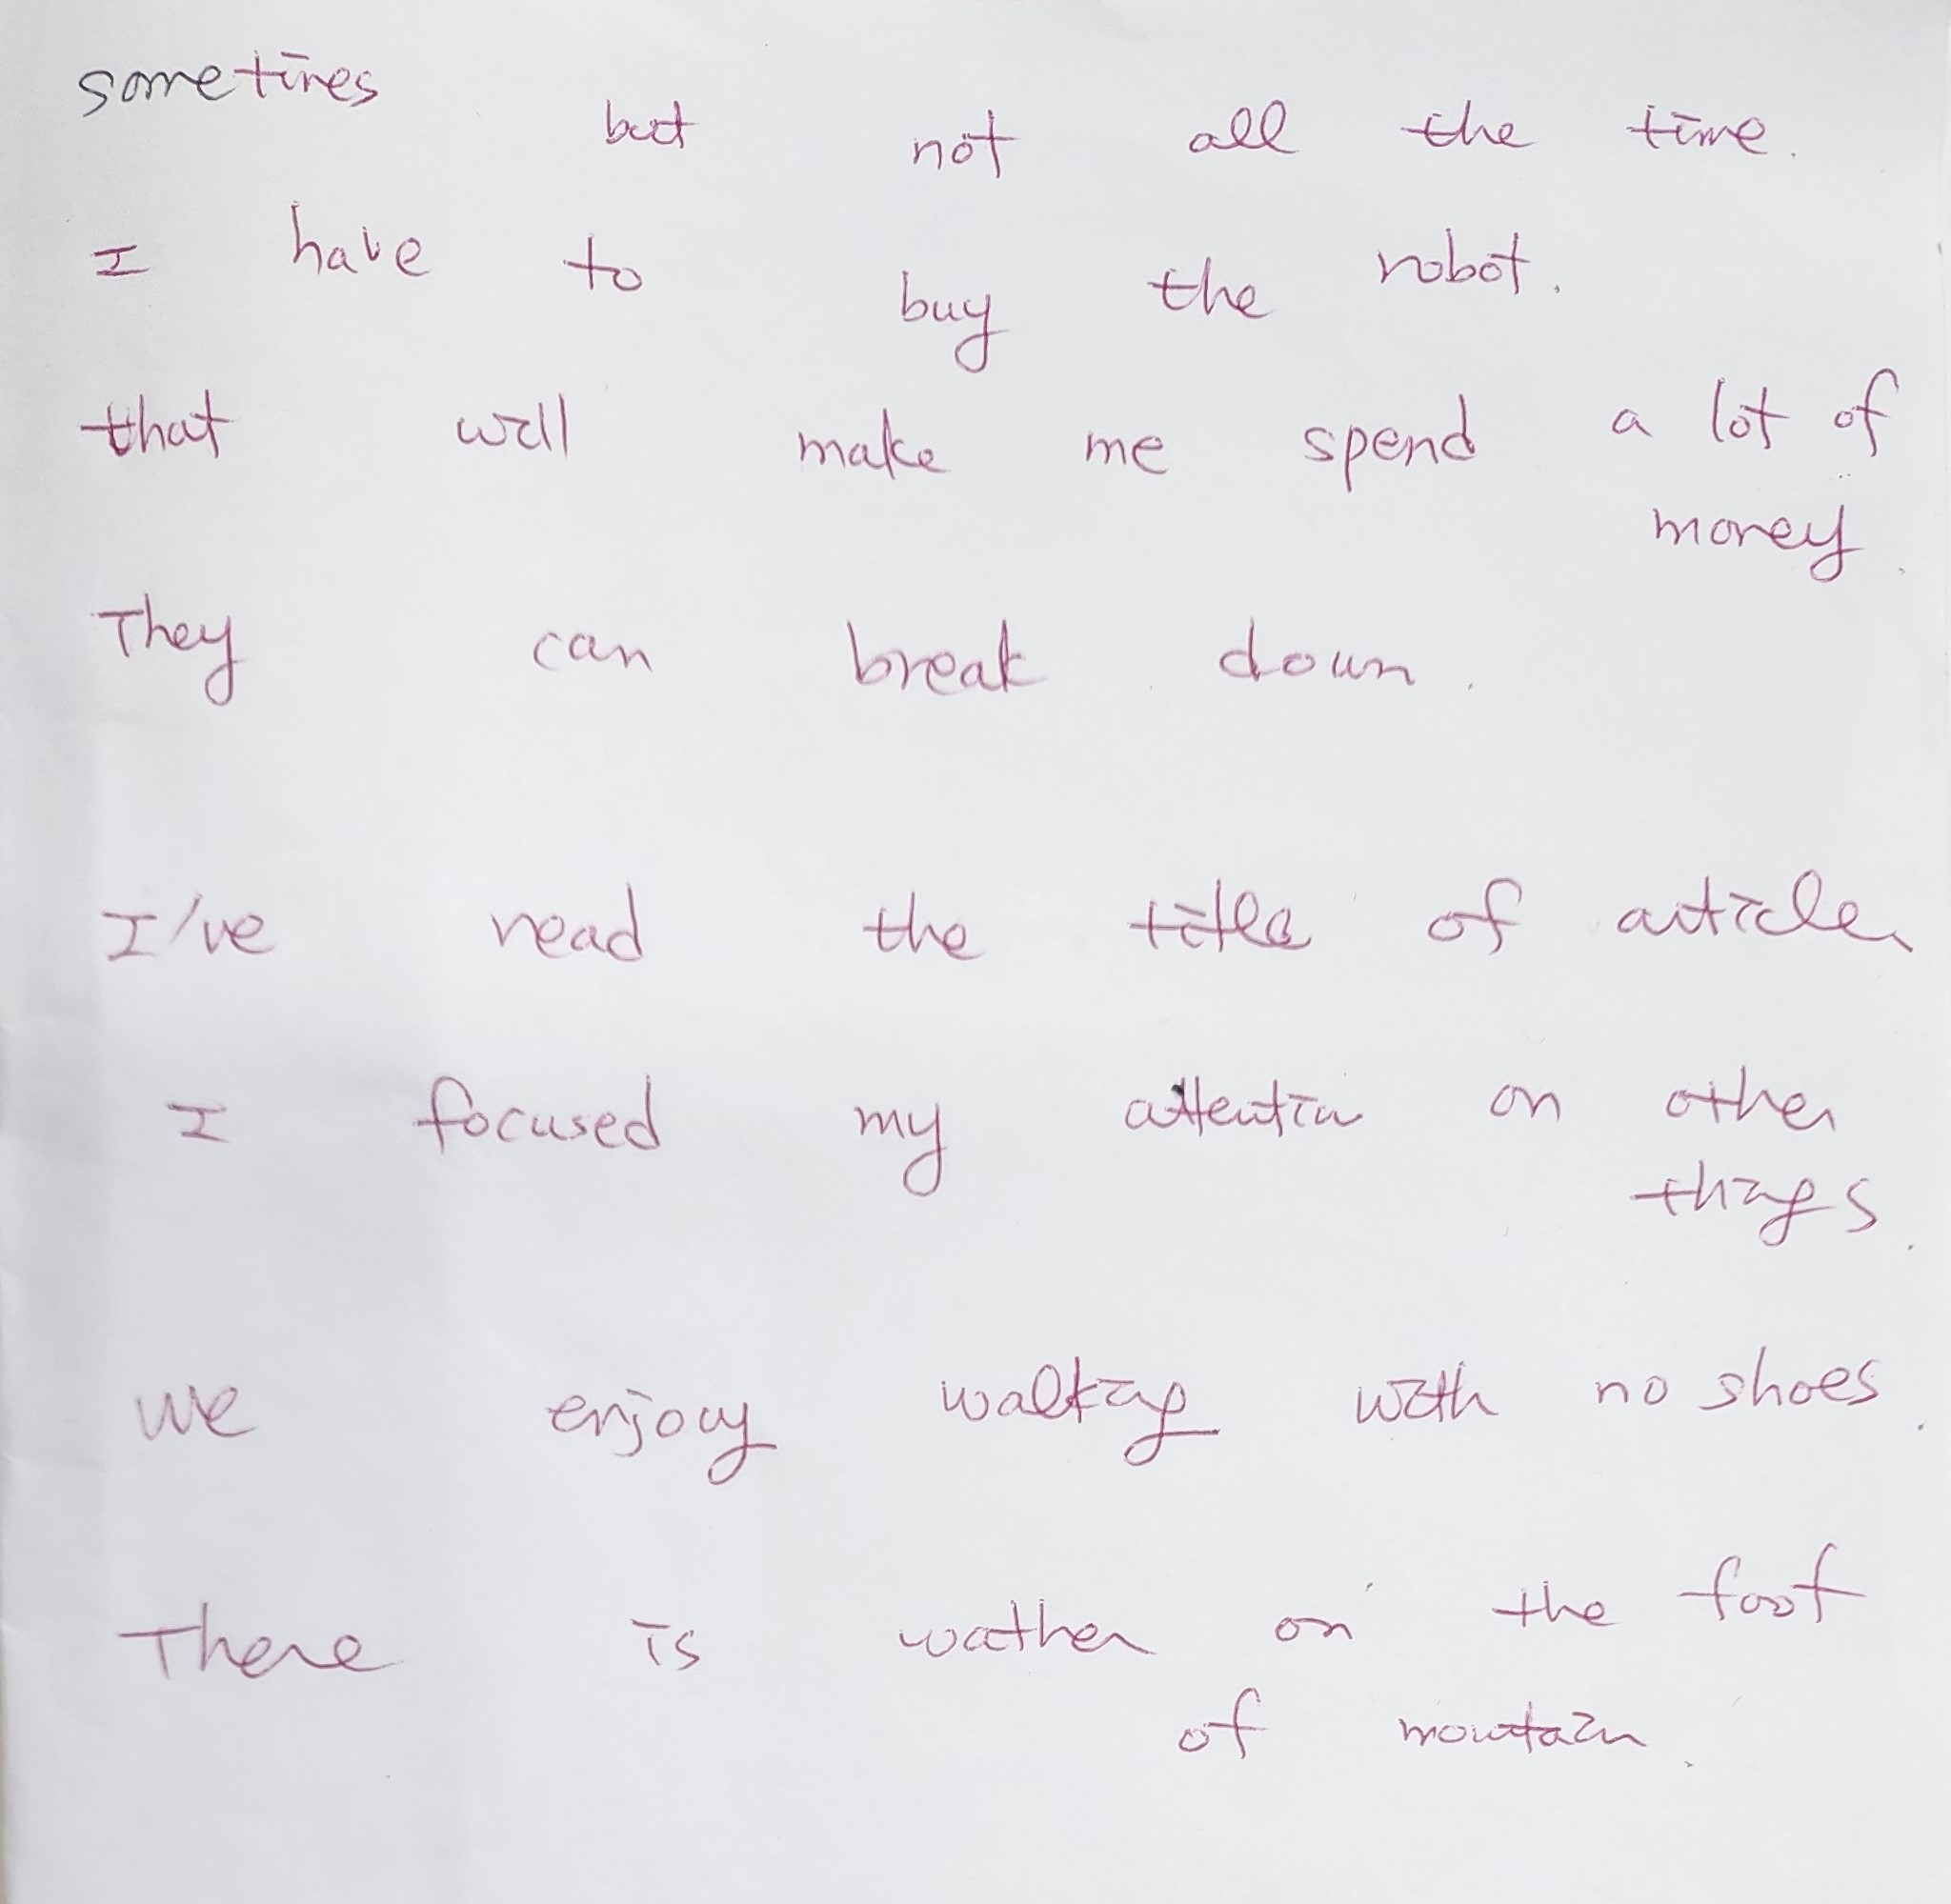 sometimes but not all the time.
I have to buy the robot.
that will make me spend a lot of
money.
They can break down.
I've read the title of article
I focused my attention on other
things.
We enjoy walking with no shoes.
There is wather on the foot
of mountain.